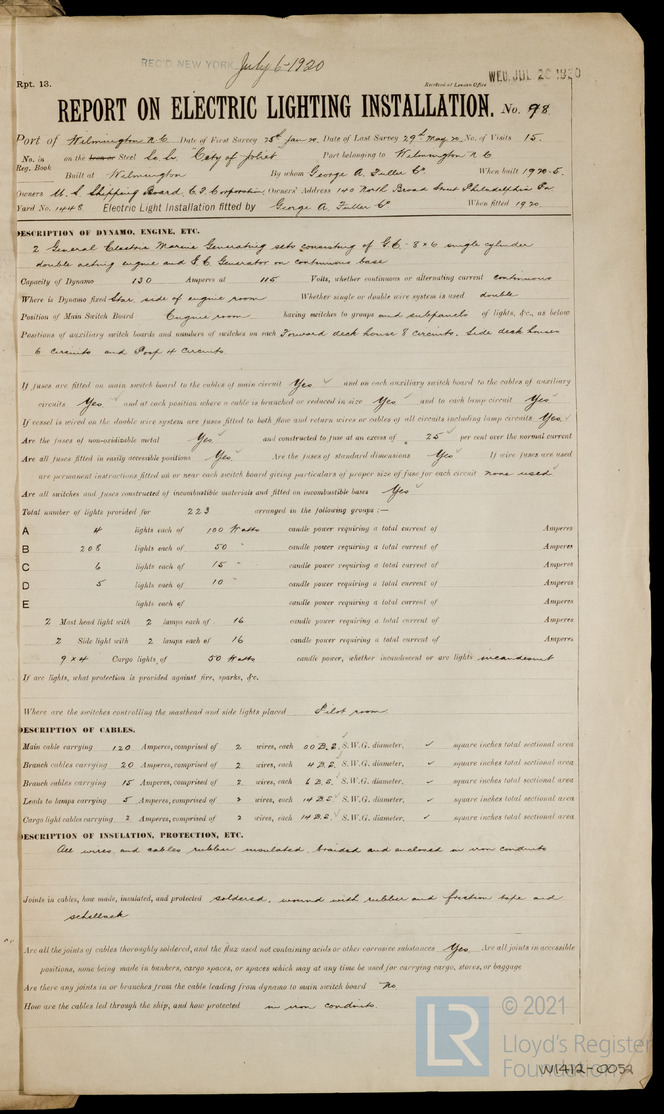 REC'D NEW YORK July 6-1920
Rpt. 13.
Received at London Office WED. JUL 28 1920
REPORT ON ELECTRIC LIGHTING INSTALLATION. No. 98
Port of Wilmington N.C. Date of First Survey 25th Jan 20 Date of Last Survey 29th May 20 No. of Visits 15.
No. in Reg. Book on the Iron or Steel S.S. "City of Joliet Port belonging to Wilmington N C
Built at Wilmington By whom George A. Fuller Co When built 1920-5.
Owners U. S. Shipping Board E.F. Corporation Owners' Address 140 North Broad Street Philadelphia Pa
Yard No. 1448 Electric Light Installation fitted by George A. Fuller Co When fitted 1920
DESCRIPTION OF DYNAMO, ENGINE, ETC.
2 General Electric Marine Generating sets consisting of G.E. - 8 x 6 single cylinder
double acting engine and G E Generator on continuous base
Capacity of Dynamo 130 Amperes at 115 Volts, whether continuous or alternating current continuous
Where is Dynamo fixed Star. side of engine room Whether single or double wire system is used double
Position of Main Switch Board Engine room having switches to groups and subpanels of lights, &c., as below
Positions of auxiliary switch boards and numbers of switches on each Forward deck house 8 circuits. Side deck houses
6 circuits and Poop 4 circuits
If fuses are fitted on main switch board to the cables of main circuit Yes ✓ and on each auxiliary switch board to the cables of auxiliary
circuits Yes ✓ and at each position where a cable is branched or reduced in size Yes ✓ and to each lamp circuit Yes ✓
If vessel is wired on the double wire system are fuses fitted to both flow and return wires or cables of all circuits including lamp circuits Yes ✓
Are the fuses of non-oxidizable metal Yes ✓ and constructed to fuse at an excess of 25 ✓ per cent over the normal current
Are all fuses fitted in easily accessible positions Yes ✓ Are the fuses of standard dimensions Yes ✓ If wire fuses are used
are permanent instructions fitted on or near each switch board giving particulars of proper size of fuse for each circuit none used ✓
Are all switches and fuses constructed of incombustible materials and fitted on incombustible bases Yes ✓
Total number of lights provided for 223 arranged in the following groups :—
A 4 lights each of 100 Watts candle power requiring a total current of Amperes
B 208 lights each of 50 " candle power requiring a total current of Amperes
C 6 lights each of 15 " candle power requiring a total current of Amperes
D 5 lights each of 10 " candle power requiring a total current of Amperes
E lights each of candle power requiring a total current of Amperes
2 Mast head light with 2 lamps each of 16 candle power requiring a total current of Amperes
2 Side light with 2 lamps each of 16 candle power requiring a total current of Amperes
9 x 4 Cargo lights of 50 Watts candle power, whether incandescent or arc lights incandescent
If arc lights, what protection is provided against fire, sparks, &c.
Where are the switches controlling the masthead and side lights placed Pilot room
DESCRIPTION OF CABLES.
Main cable carrying 120 Amperes, comprised of 2 wires, each 00 B.S. S.W.G. diameter, ✓ square inches total sectional area
Branch cables carrying 20 Amperes, comprised of 2 wires, each 4 B.S. S.W.G. diameter, ✓ square inches total sectional area
Branch cables carrying 15 Amperes, comprised of 2 wires, each 6 B.S. S.W.G. diameter, ✓ square inches total sectional area
Leads to lamps carrying 5 Amperes, comprised of 2 wires, each 14 B.S. S.W.G. diameter, ✓ square inches total sectional area
Cargo light cables carrying 2 Amperes, comprised of 2 wires, each 14 B.S. S.W.G. diameter, ✓ square inches total sectional area
DESCRIPTION OF INSULATION, PROTECTION, ETC.
All wires and cables rubber insulated, braided and enclosed in iron conduits
Joints in cables, how made, insulated, and protected soldered, wound with rubber and friction tape and
schellack
Are all the joints of cables thoroughly soldered, and the flux used not containing acids or other corrosive substances Yes. Are all joints in accessible
positions, none being made in bunkers, cargo spaces, or spaces which may at any time be used for carrying cargo, stores, or baggage
Are there any joints in or branches from the cable leading from dynamo to main switch board No
How are the cables led through the ship, and how protected in iron conduits
LR © 2021
Lloyd's Register
Foundation
W1412-0052